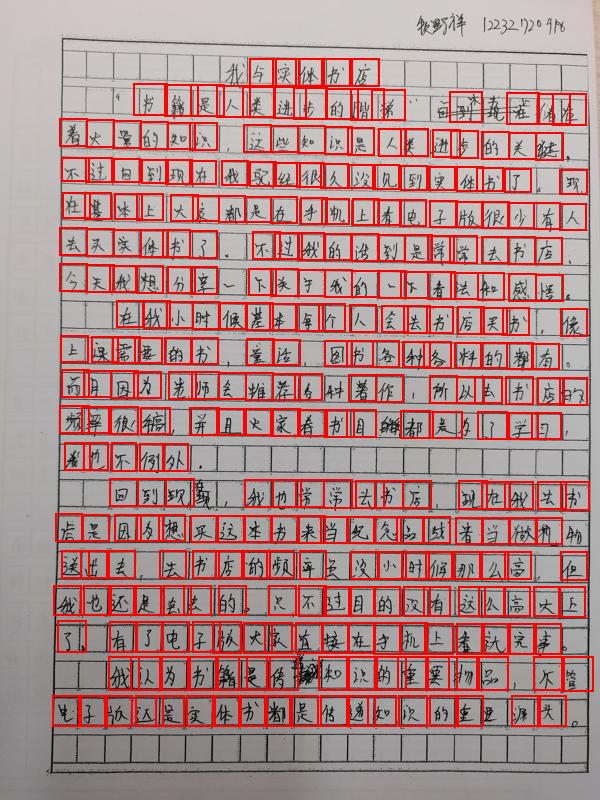 野祥 1223272049
我与实体书店
“书籍是人类进步的阶梯”自到现在储存
着大量的知识，这些知识是人类进步的关键。
不过回到现在我已经很久没见到实体书了。现
在基本上大家都是在手机上看电子版很少有人
去买实体书了。不过我的话到是常常去书店，
今天我想分享一下关于我的一下看法和感悟。
在我小时候基本每个人会去书店买书，像
上课需要的书，童话，图书各种各料的都有。
而且因为老师会推荐各种著作，所以去书店的
频率很搞，并且大家看书目都是为了学习，
我也不例外.
回到现，我也常常去书店，现在我去书
店是因为想买这本书来当纪念品或者当做礼物
送出去，去书店的频率虽没小时候那么高，但
我也还是会去的。只不过目的没有这么高大上
了。有了电子版大家直接在手机上看就完事。
我认为书籍是传知识的重要物品，不管
电子版还是实体书都是传递知识的重要源头。